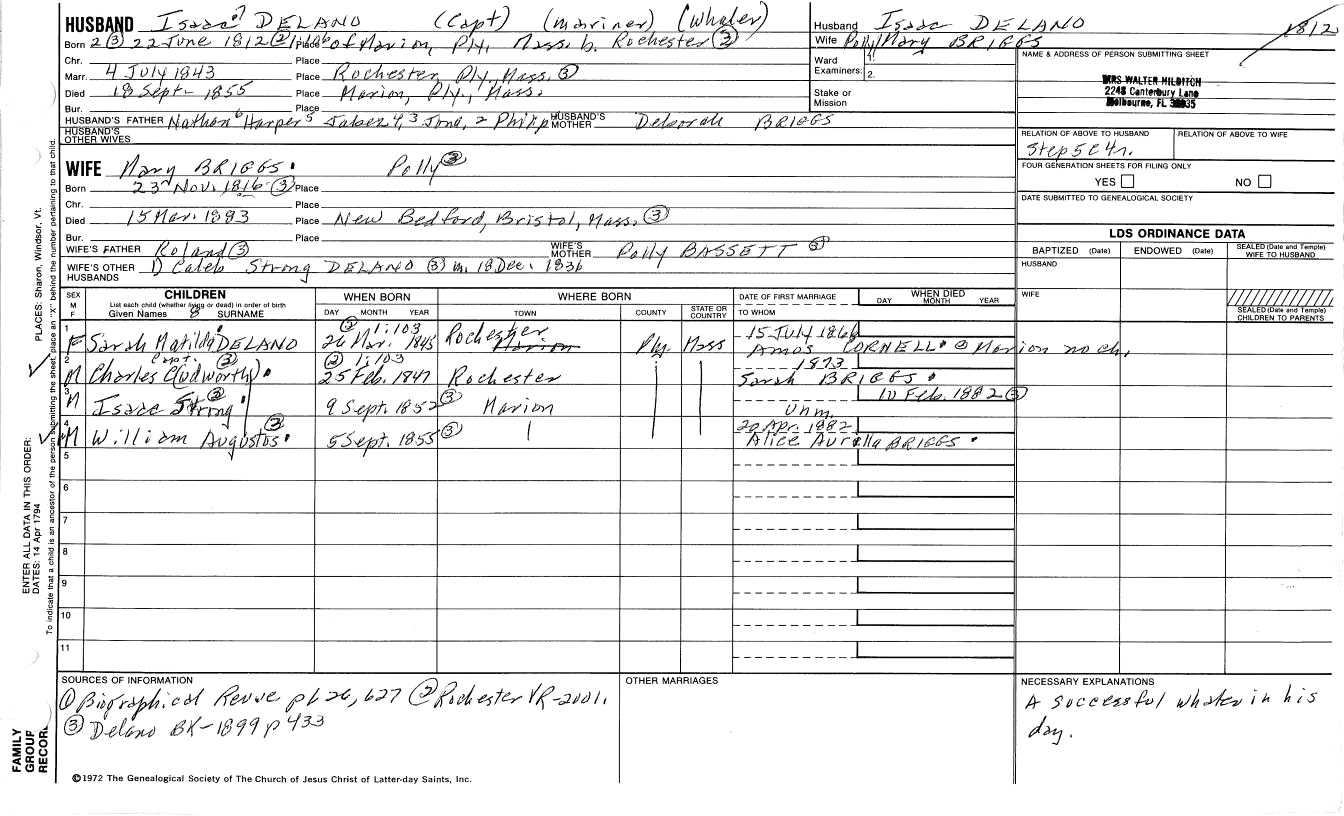 HUSBAND Isaac7 DELANO (Capt) (mariner) (Whaler)
Born 22 June 1812 Place of Marion, Ply, Mass. b. Rochester ②
Chr. Place
Marr. 4 July 1843 Place Rochester, Ply, Mass. ③
Died 18 Sept- 1855 Place Marion, Ply., Mass.
Bur. Place
HUSBAND'S FATHER Nathan6 Harper5 Jabez4, 3 Jona, 2 Philip HUSBAND'S MOTHER Deborah BRIGGS
HUSBAND'S OTHER WIVES
WIFE Mary BRIGGS Polly ③
Born 23 Nov. 1816 ③ Place
Chr. Place
Died 15 Mar. 1883 Place New Bedford, Bristol, Mass. ③
Bur. Place
WIFE'S FATHER Roland ③ WIFE'S MOTHER Polly BASSETT ③
WIFE'S OTHER HUSBANDS 1) Caleb Strong DELANO ③ m. 18 Dec. 1836
Husband Isaac DELANO 1812
Wife Polly/Mary BRIGGS
Ward 1.
Examiners: 2.
Stake or Mission
NAME & ADDRESS OF PERSON SUBMITTING SHEET
MRS WALTER HILDITCH
2248 Canterbury Lane
Melbourne, FL
RELATION OF ABOVE TO HUSBAND RELATION OF ABOVE TO WIFE
Step 5C4r.
FOUR GENERATION SHEETS FOR FILING ONLY
YES NO
DATE SUBMITTED TO GENEALOGICAL SOCIETY
LDS ORDINANCE DATA
BAPTIZED (Date) ENDOWED (Date) SEALED (Date and Temple) WIFE TO HUSBAND
HUSBAND
WIFE
SEALED (Date and Temple) CHILDREN TO PARENTS
SEX M F CHILDREN WHEN BORN WHERE BORN DATE OF FIRST MARRIAGE WHEN DIED
List each child (whether living or dead) in order of birth
Given Names 8 SURNAME DAY MONTH YEAR TOWN COUNTY STATE OR COUNTRY TO WHOM DAY MONTH YEAR
1 F Sarah Matilda DELANO ② 1:103 26 Mar. 1845 Rochester Marion Ply Mass 15 July 1866 Amos CORNELL @ Marion no ch.
2 M Capt. Charles C(udworth) ③ ② 1:103 25 Feb. 1847 Rochester 1873 Sarah BRIGGS
3 M Isaac Strong ③ 9 Sept. 1852 ③ Marion unm. 10 Feb. 1882 ③
4 M William Augustus ③ 5 Sept. 1855 ③ 20 Apr. 1882 Alice Aurilla BRIGGS
5
6
7
8
9
10
11
SOURCES OF INFORMATION
① Biographical Revue p626, 627 ② Rochester VR-2001.
③ Delano BK-1899 p 433
OTHER MARRIAGES
NECESSARY EXPLANATIONS
A successful whaler in his
day.
©1972 The Genealogical Society of The Church of Jesus Christ of Latter-day Saints, Inc.
FAMILY GROUP RECORD
ENTER ALL DATA IN THIS ORDER:
DATES: 14 Apr 1794 PLACES: Sharon, Windsor, Vt.
To indicate that a child is an ancestor of the person submitting the sheet, place an "X" behind the number pertaining to that child.